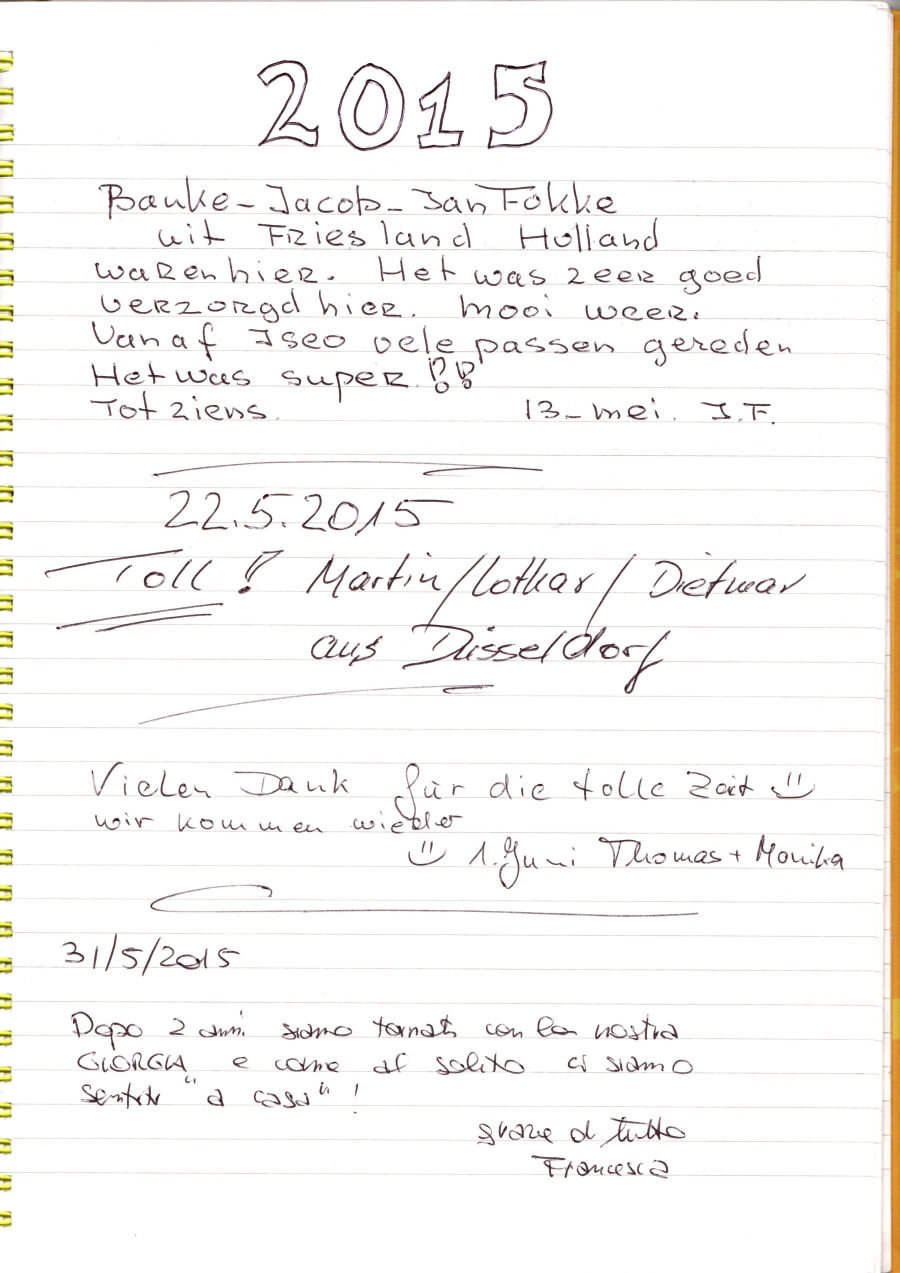 2015
Bauke - Jacob - Jan Fokke
uit Friesland Holland
waren hier. Het was zeer goed
verzorgd hier. mooi weer.
Vanaf Iseo vele passen gereden
Het was super !? !?
Tot ziens. 13-mei. J.F.
22.5.2015
Toll! Martin/Lothar/Dietmar
aus Düsseldorf
Vielen Dank für die tolle Zeit
wir kommen wieder
1. Juni Thomas + Monika
31/5/2015
Dopo 2 anni siamo tornati con la nostra
GIORGIA e come al solito ci siamo
sentiti "a casa"!
grazie di tutto
Francesca